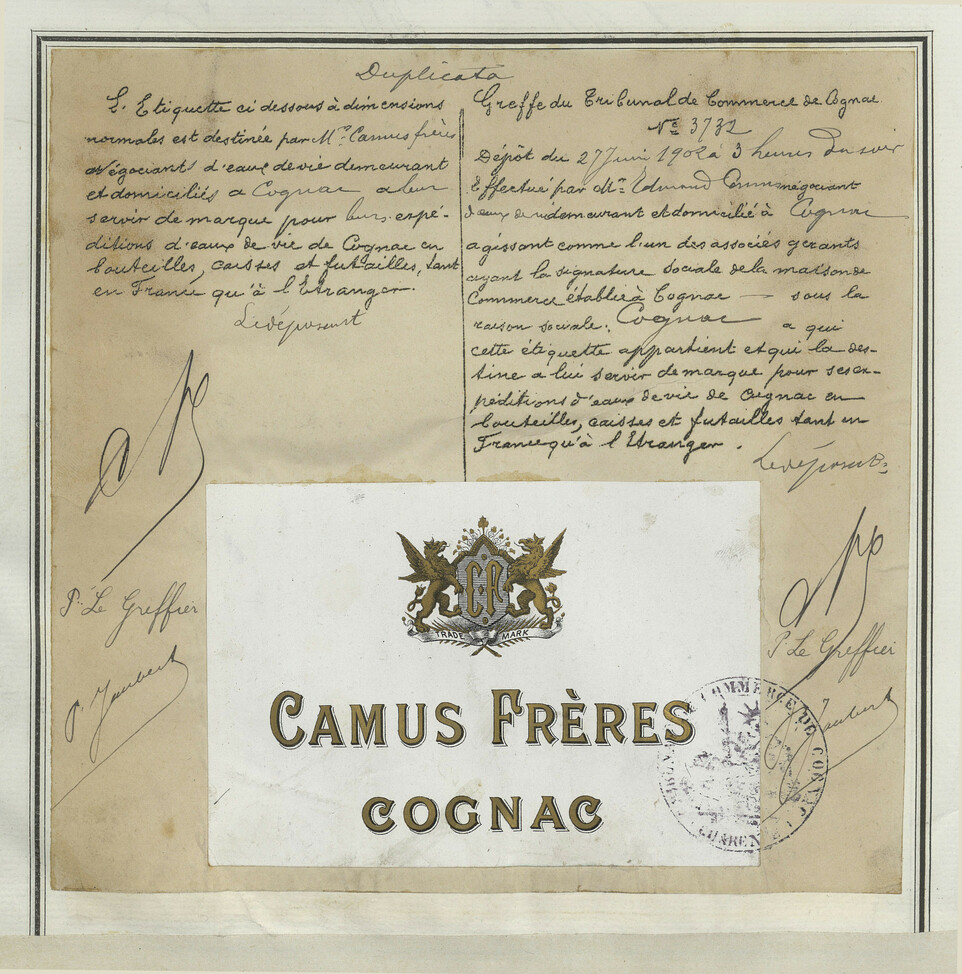 Duplicata
L'Etiquette ci dessous à dimensions
normales est destinée par Mrs Camus frères
Négociants d'eaux de vie demeurant
et domiciliés a Cognac a leur
servir de marque pour leurs expé-
ditions d'eaux de vie de Cognac en
bouteilles, caisses et futailles, tant
en France qu'à l'Etranger.
Le déposant
Pr Le Greffier
P. Jaubert
Greffe du Tribunal de Commerce de Cognac
No 3732
Dépôt du 27 Juin 1902 à 3 heures du soir
Effectué par Mr Edmond Camus négociant
d'eaux de vie demeurant et domicilié à Cognac
agissant comme l'un des associés gerants
ayant la signature sociale de la maison de
Commerce établie à Cognac — sous la
raison sociale: Cognac a qui
cette étiquette appartient et qui la des-
tine a lui servir de marque pour ses ex-
péditions d'eaux de vie de Cognac en
bouteilles, caisses et futailles tant en
France qu'à l'Etranger.
Le déposant
Pr Le Greffier
Jaubert
CF
TRADE MARK
CAMUS FRÈRES
COGNAC
TRIBUNAL DE COMMERCE DE COGNAC
CHARENTE